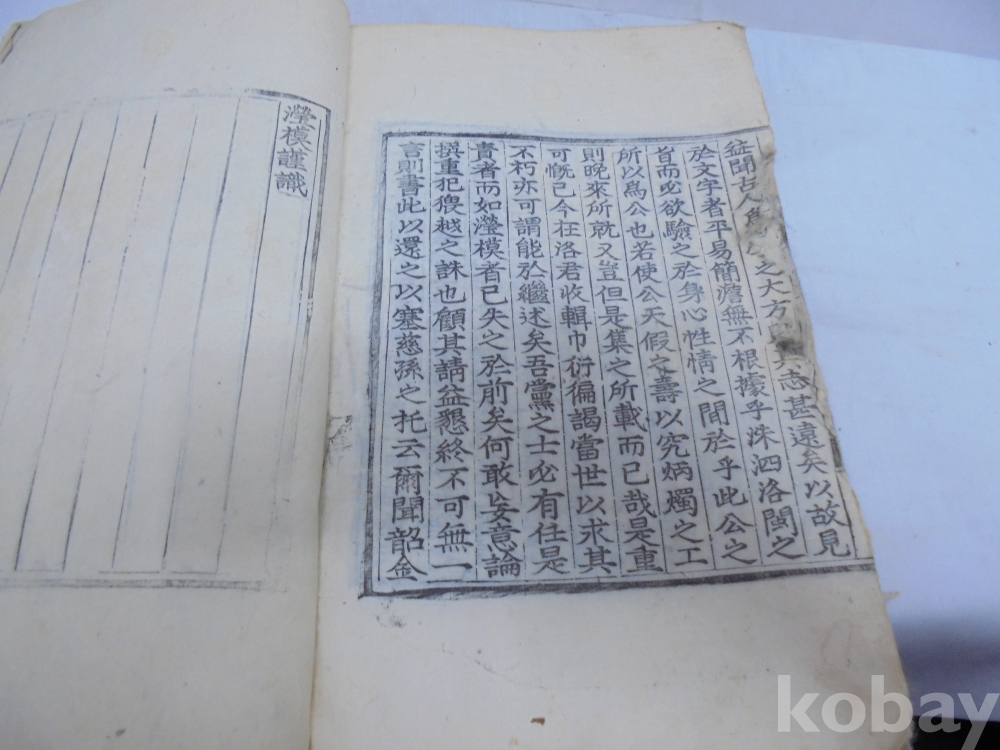 益聞古人之大方其志甚遠矣以故見
於文字者平易簡澹無不根據乎洙泗洛閩之
旨而必欲驗之於身心性情之間於乎此公之
所以爲公也若使公天假之壽以究炳燭之工
則晩來所就又豈但是集之所載而已哉是重
可慨已今在洛君收輯巾衍徧謁當世以求其
不朽亦可謂能於繼述矣吾黨之士必有任是
責者而如瀅模者已失之於前矣何敢妄意論
撰重犯猥越之誅也顧其請益懇終不可無一
言則書此以還之以塞慈孫之托云爾聞韶金
瀅模謹識
kobay